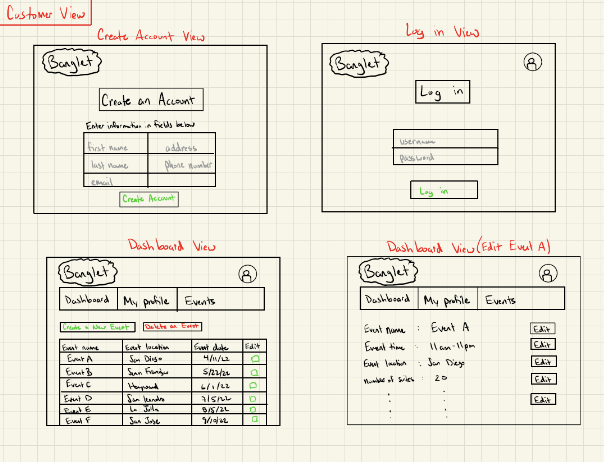 Customer View
Create Account View
Banglet
Create an Account
Enter information in fields below
first name address
last name phone number
email
Create Account
Log in View
Banglet
Log in
username
password
Log in
Dashboard View
Banglet
Dashboard My profile Events
Create a New Event Delete an Event
Event name Event location Event date Edit
Event A San Diego 4/11/22
Event B San Francisco 5/22/22
Event C Hayward 6/1/22
Event D San Leandro 7/5/22
Event E La Jolla 8/5/22
Event F San Jose 9/10/22
Dashboard View (Edit Event A)
Banglet
Dashboard My profile Events
Event name : Event A Edit
Event time : 11am-11pm Edit
Event location : San Diego Edit
number of : 20 Edit
Edit